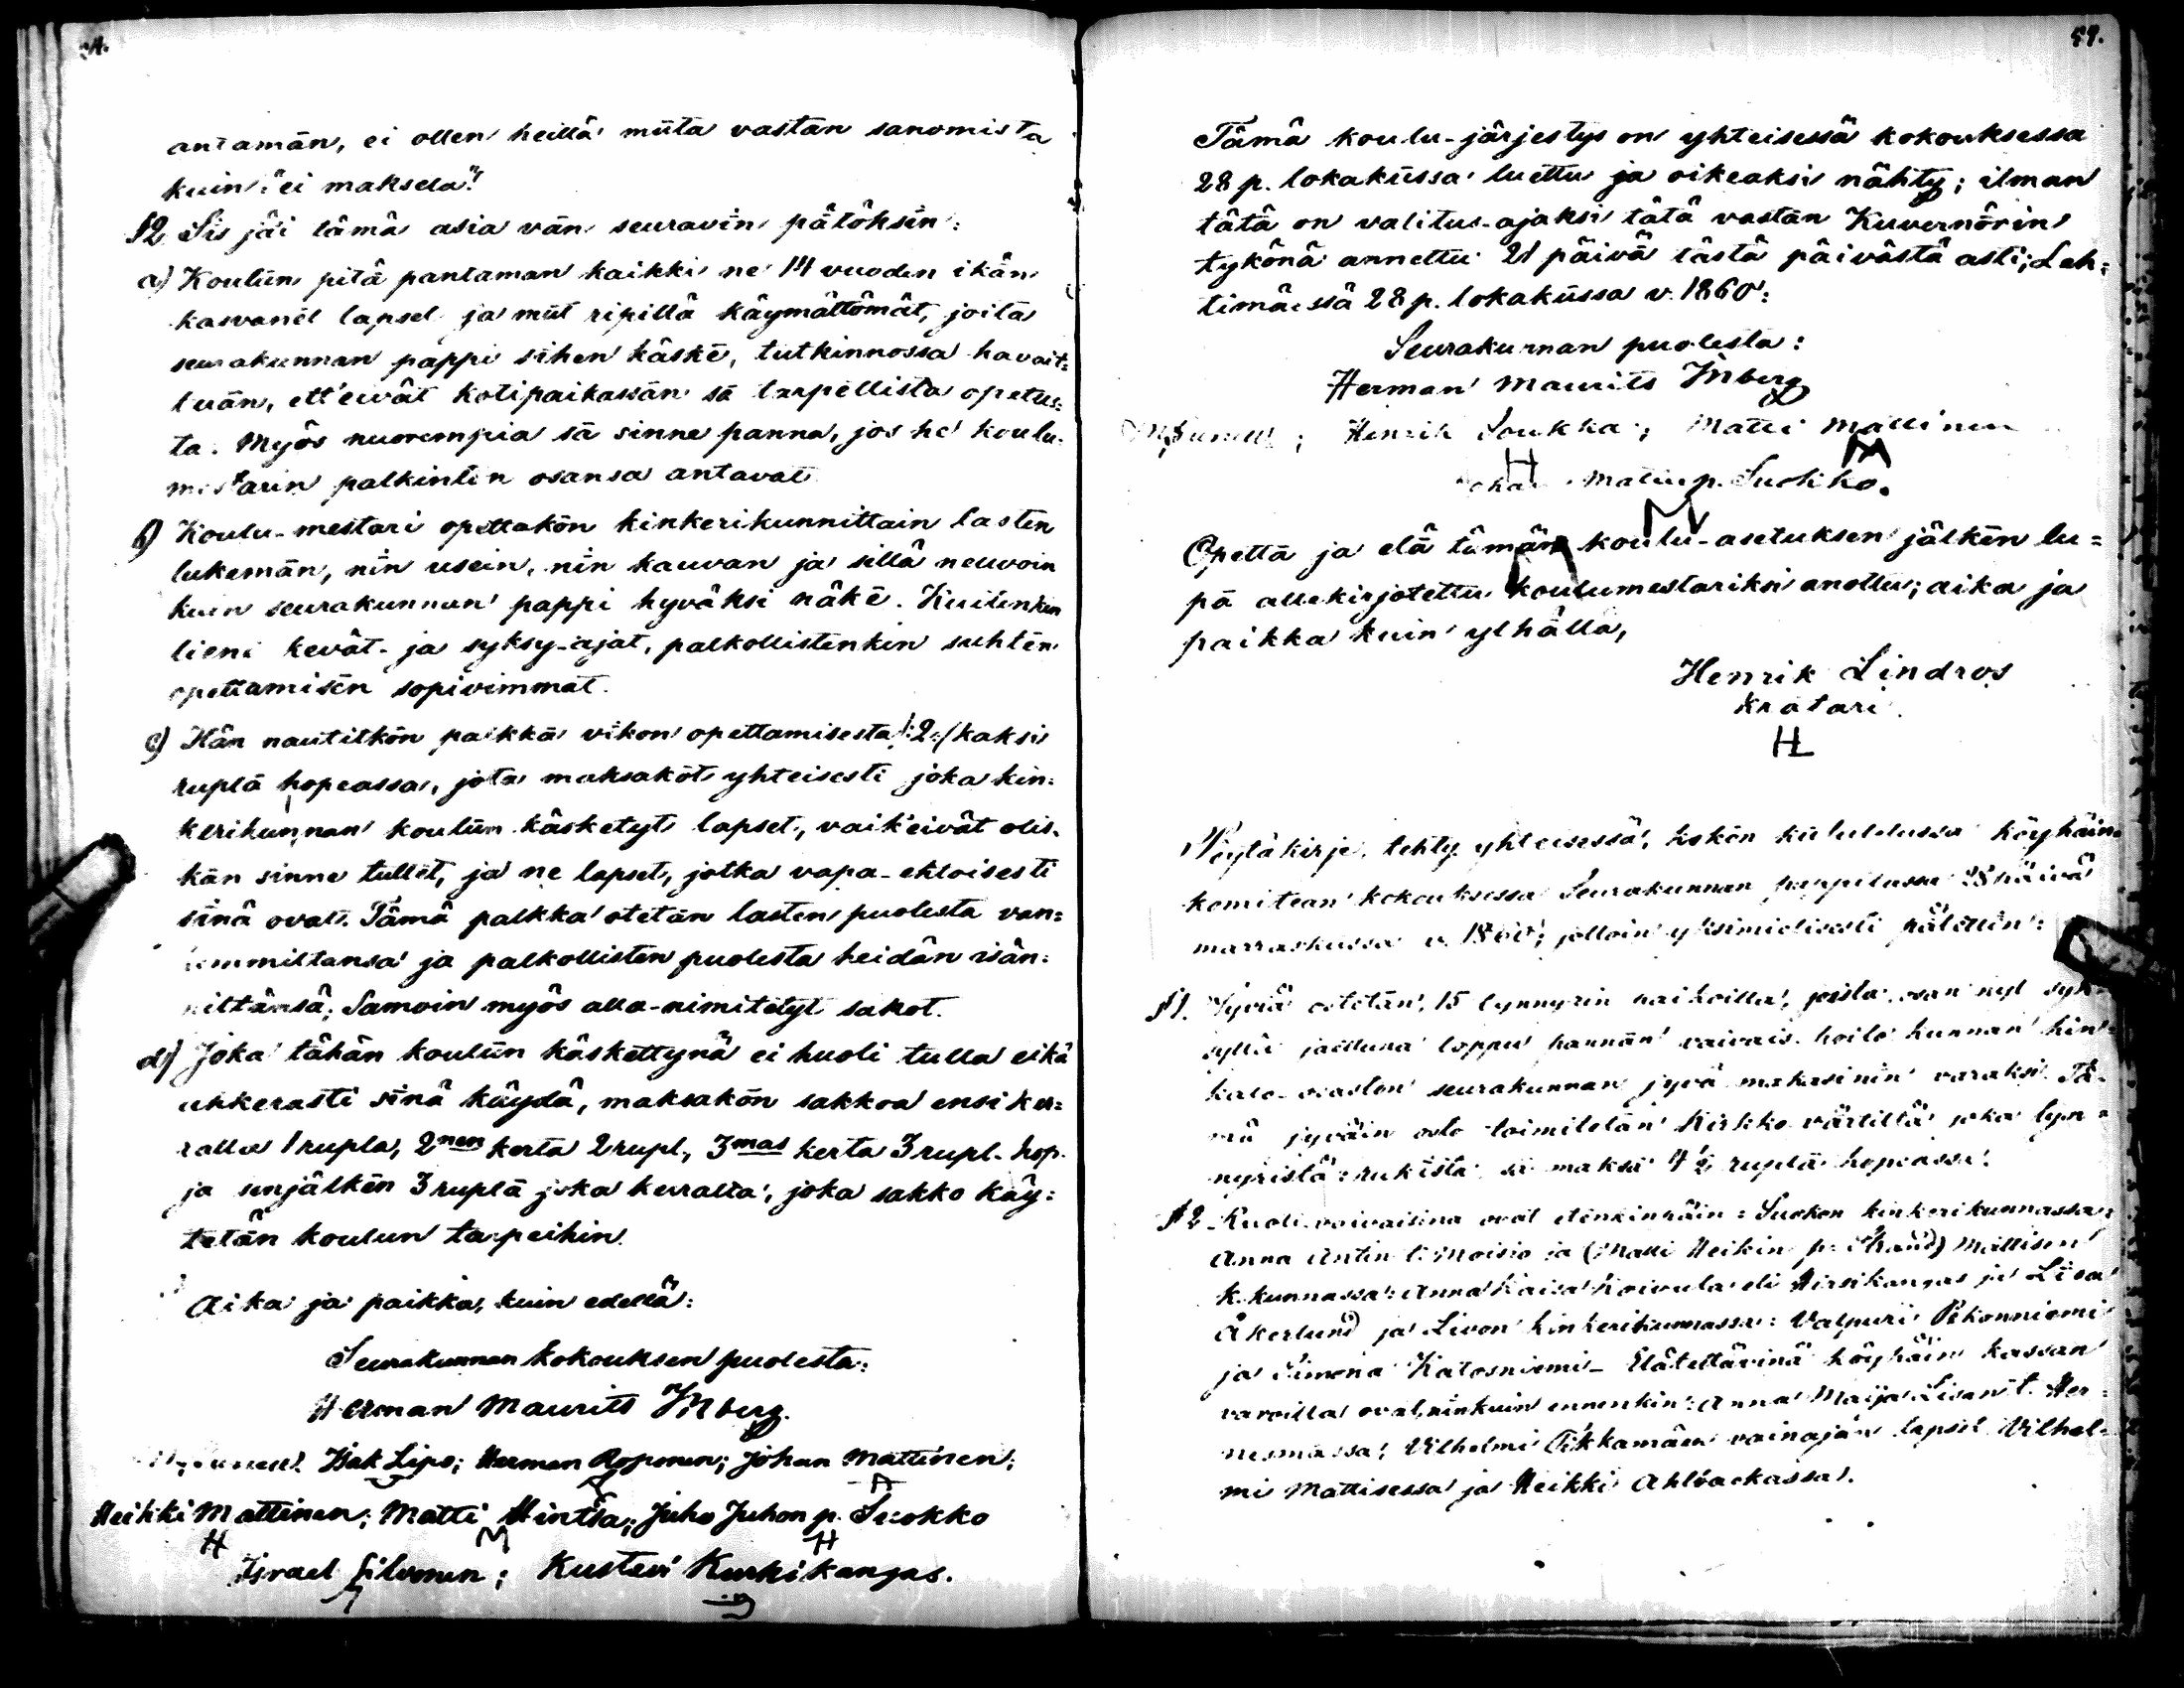 antamān, ei ollen heillä mūta vastān sanomista
kuin: "ei maksela".
§2 Sīs jäi tämä asia vān seuravīn pätöksīn:
a) Koulūn pitä pantaman kaikki ne 14 vuoden ikān
kasvanēt lapset ja mūt ripillä käymättömät, joita
seurakunnan pappi sīhen käskē, tutkinnossa havait=
tuān, ett'eivät kotipaikassān sā tarpēllista opetus=
ta. Myös nuorempia sā sinne panna, jos he koulu=
mestarin palkintōn osansa antavat.
b) Koulu-mestari opettakōn kinkerikunnittain lasten
lukemān, nīn usein, nīn kauvan ja sillä neuvoin
kuin seurakunnan pappi hyväksi näkē. Kuitenkin
lienē kevät- ja syksy-ajat, palkollistenkin suhtēn
opettamisēn sopivimmat.
c) Hän nautitkōn palkkā vīkon opettamisesta /:2:/ kaksi
ruplā hopeassa, jota maksakōt yhteisesti joka kin=
kerikunnan koulūn käsketyt lapset, vaik'eivät olis=
kān sinne tullēt, ja ne lapset, jotka vapa-ehtoisesti
sīnä ovat. Tämä palkka otetān lasten puolesta van=
hemmiltansa ja palkollisten puolesta heidän isän=
niltänsä; Samoin myös alla-nimitetyt sakot.
d) Joka tähän koulūn käskettynä ei huoli tulla eikä
uhkerasti sīnä käydä, maksakōn sakkoa ensi ker=
ralla 1 rupla, 2nen kerta 2 rupl., 3mas kerta 3 rupl. hop.
ja senjälkēn 3 ruplā joka kerralta, joka sakko käy=
tetän koulun tarpeihin.
Aika ja paikka, kuin edellä:
Seurakunnan kokouksen puolesta:
Herman Maurits Inberg.
Isak Lipo; Herman Roponen; Johan Mattinen;
Heikki Mattinen; Matti Hintsa; Juho Juhon p. Suokko
H M H
Israel Silvonen; Kustavi Kurkikangas.
59.
Tämä koulu-järjestys on yhteisessä kokouksessa
28 p. lokakūssa luettu ja oikeaksi nähty; ilman
tätä on valitus-ajaksi tätä vastān Kuvernörin
tykönä annettu 21 päivä tästä päivästä asti; Leh=
timäessä 28 p. lokakūssa v. 1860:
Seurakunnan puolesta:
Herman Maurits Inberg
Henrik Soukka; Matti Mattinen
H M
Matin p. Suokko.
M
Opettā ja elā tämän koulu-asetuksen jälkēn lu=
pā allekirjotettu koulumestariksi anottu; aika ja
paikka kuin ylhällä,
Henrik Lindros
Krätari.
HL
Pöytäkirja, tehty yhteisessä, kokōn kūlutetussa köyhäin
komitean kokouksessa Seurakunnan pappilassa 28 päivä
marraskūssa v. 1860; jolloin yksimielisesti pätettīn:
§1. Jyviā ostetān, 15 tynnyrin joista osan nyt
loppu pannān vaivais-hoito kunnan
seurakunnan jyvä-makasinin varaksi. Tä=
mä jyväin osto toimitetān Kirkko värtiltä joka tyn=
nyristä rukīsta sā maksā 4½ ruplā hopeassa.
§2. Ruoti-vaivaisina ovat etenkinkäin: Suokon kinkerikunnassa:
Anna Antin t. Moisio ja (Matti Heikin p. Mattisen
k. kunnassa: Anna Kaisa Koivula eli Hirsikangas ja Līsa
Åkerlund) ja Livon kinkerikunnassa: Valpuri Pekonniemi
ja Simona Katosniemi - Elätettävinä köyhäin kassan
varoilla ovat, nīnkuin ennenkin: Anna Maija Līsan t. Her=
nesmāssa, Vilhelmi Pikkamäen vainajān lapset Vilhel=
mi Mattisessa ja Heikki Ahlbackassa.